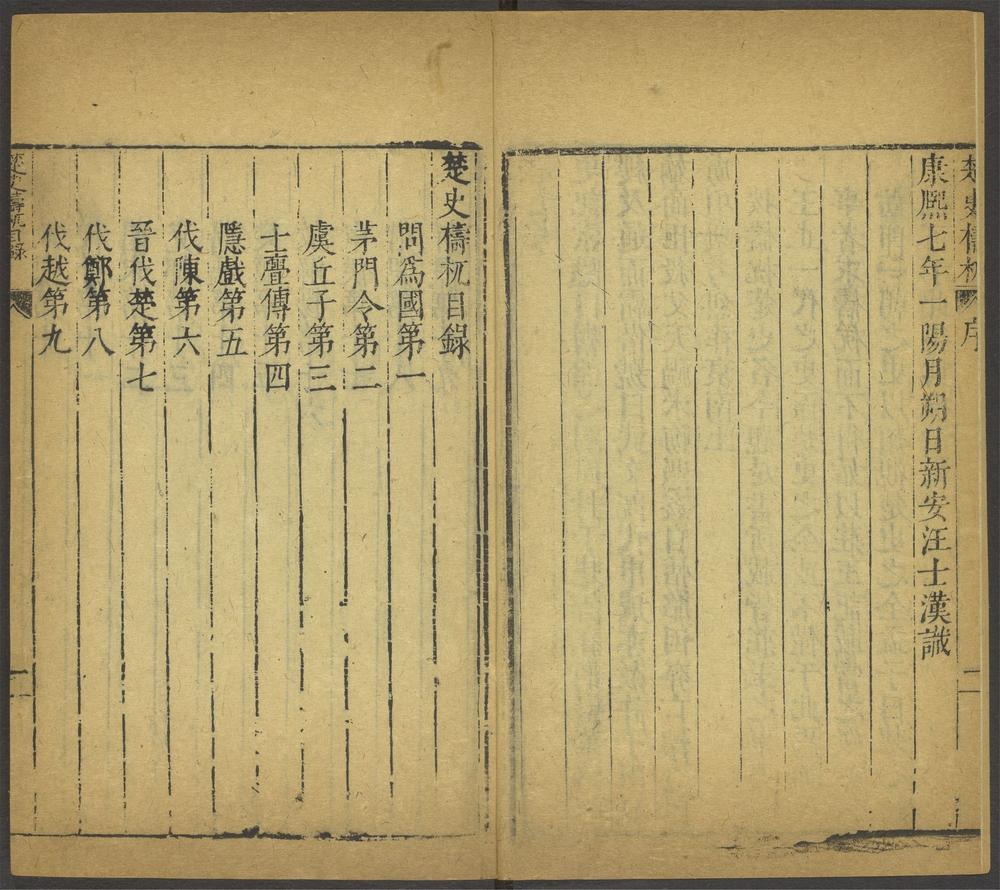 楚史檮杌 序 二
康熈七年一陽月朔日新安汪士漢識
楚史檮杌目錄
問爲國第一
茅門令第二
虞丘子第三
士亹傳第四
隱戲第五
伐陳第六
晉伐楚第七
伐鄭第八
伐越第九
楚史檮杌目錄 一